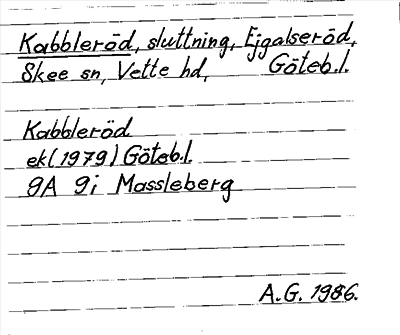 Kabbleröd, sluttning, Ejgalseröd,
Skee sn, Vette hd, Göteb.l.
Kabbleröd
ek (1979) Göteb.l.
9A 9i Massleberg
A.G. 1986.